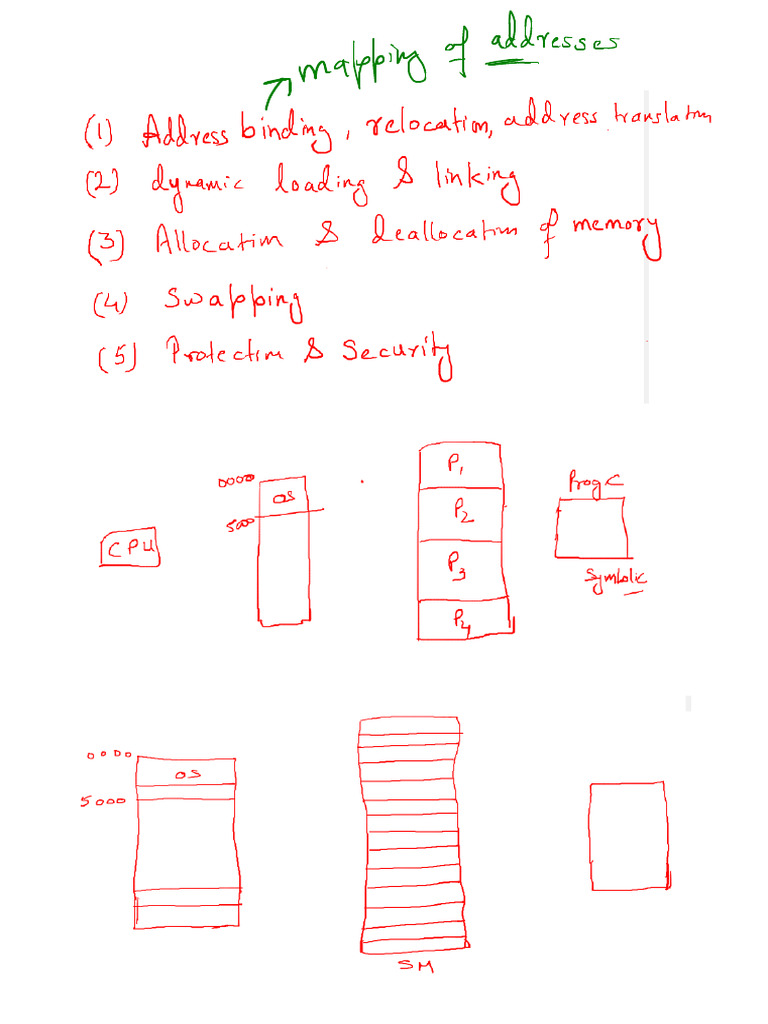 mapping of addresses
(1) Address binding, relocation, address translation
(2) dynamic loading & linking
(3) Allocation & deallocation of memory
(4) Swapping
(5) Protection & Security
0000
OS
500
CPU
P1
P2
P3
P4
Prog C
Symbolic
0000
OS
5000
SM